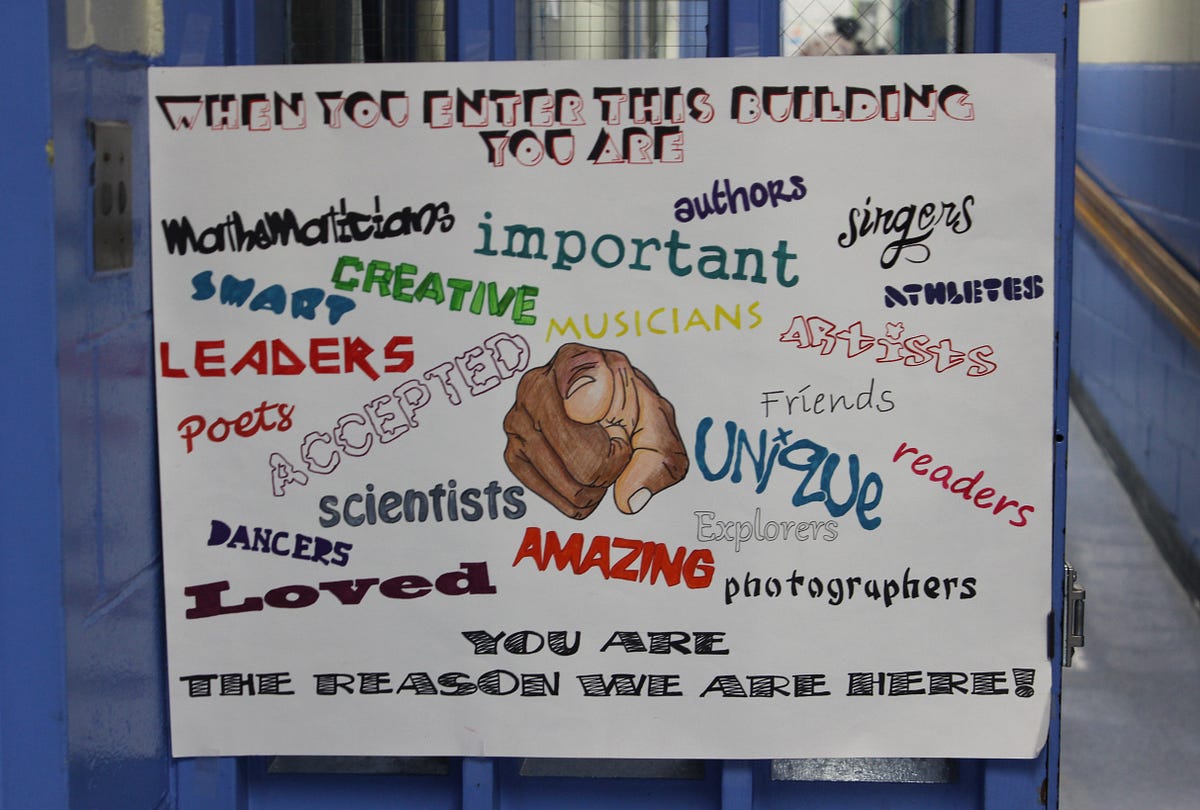 WHEN YOU ENTER THIS BUILDING
YOU ARE
authors
singers
matheMaticians
important
SMART
CREATIVE
ATHLETES
MUSICIANS
ARtists
LEADERS
ACCEPTED
Friends
Poets
UNiQUe
readers
scientists
Explorers
DANCERS
AMAZING
Loved
photographers
YOU ARE
THE REASON WE ARE HERE!